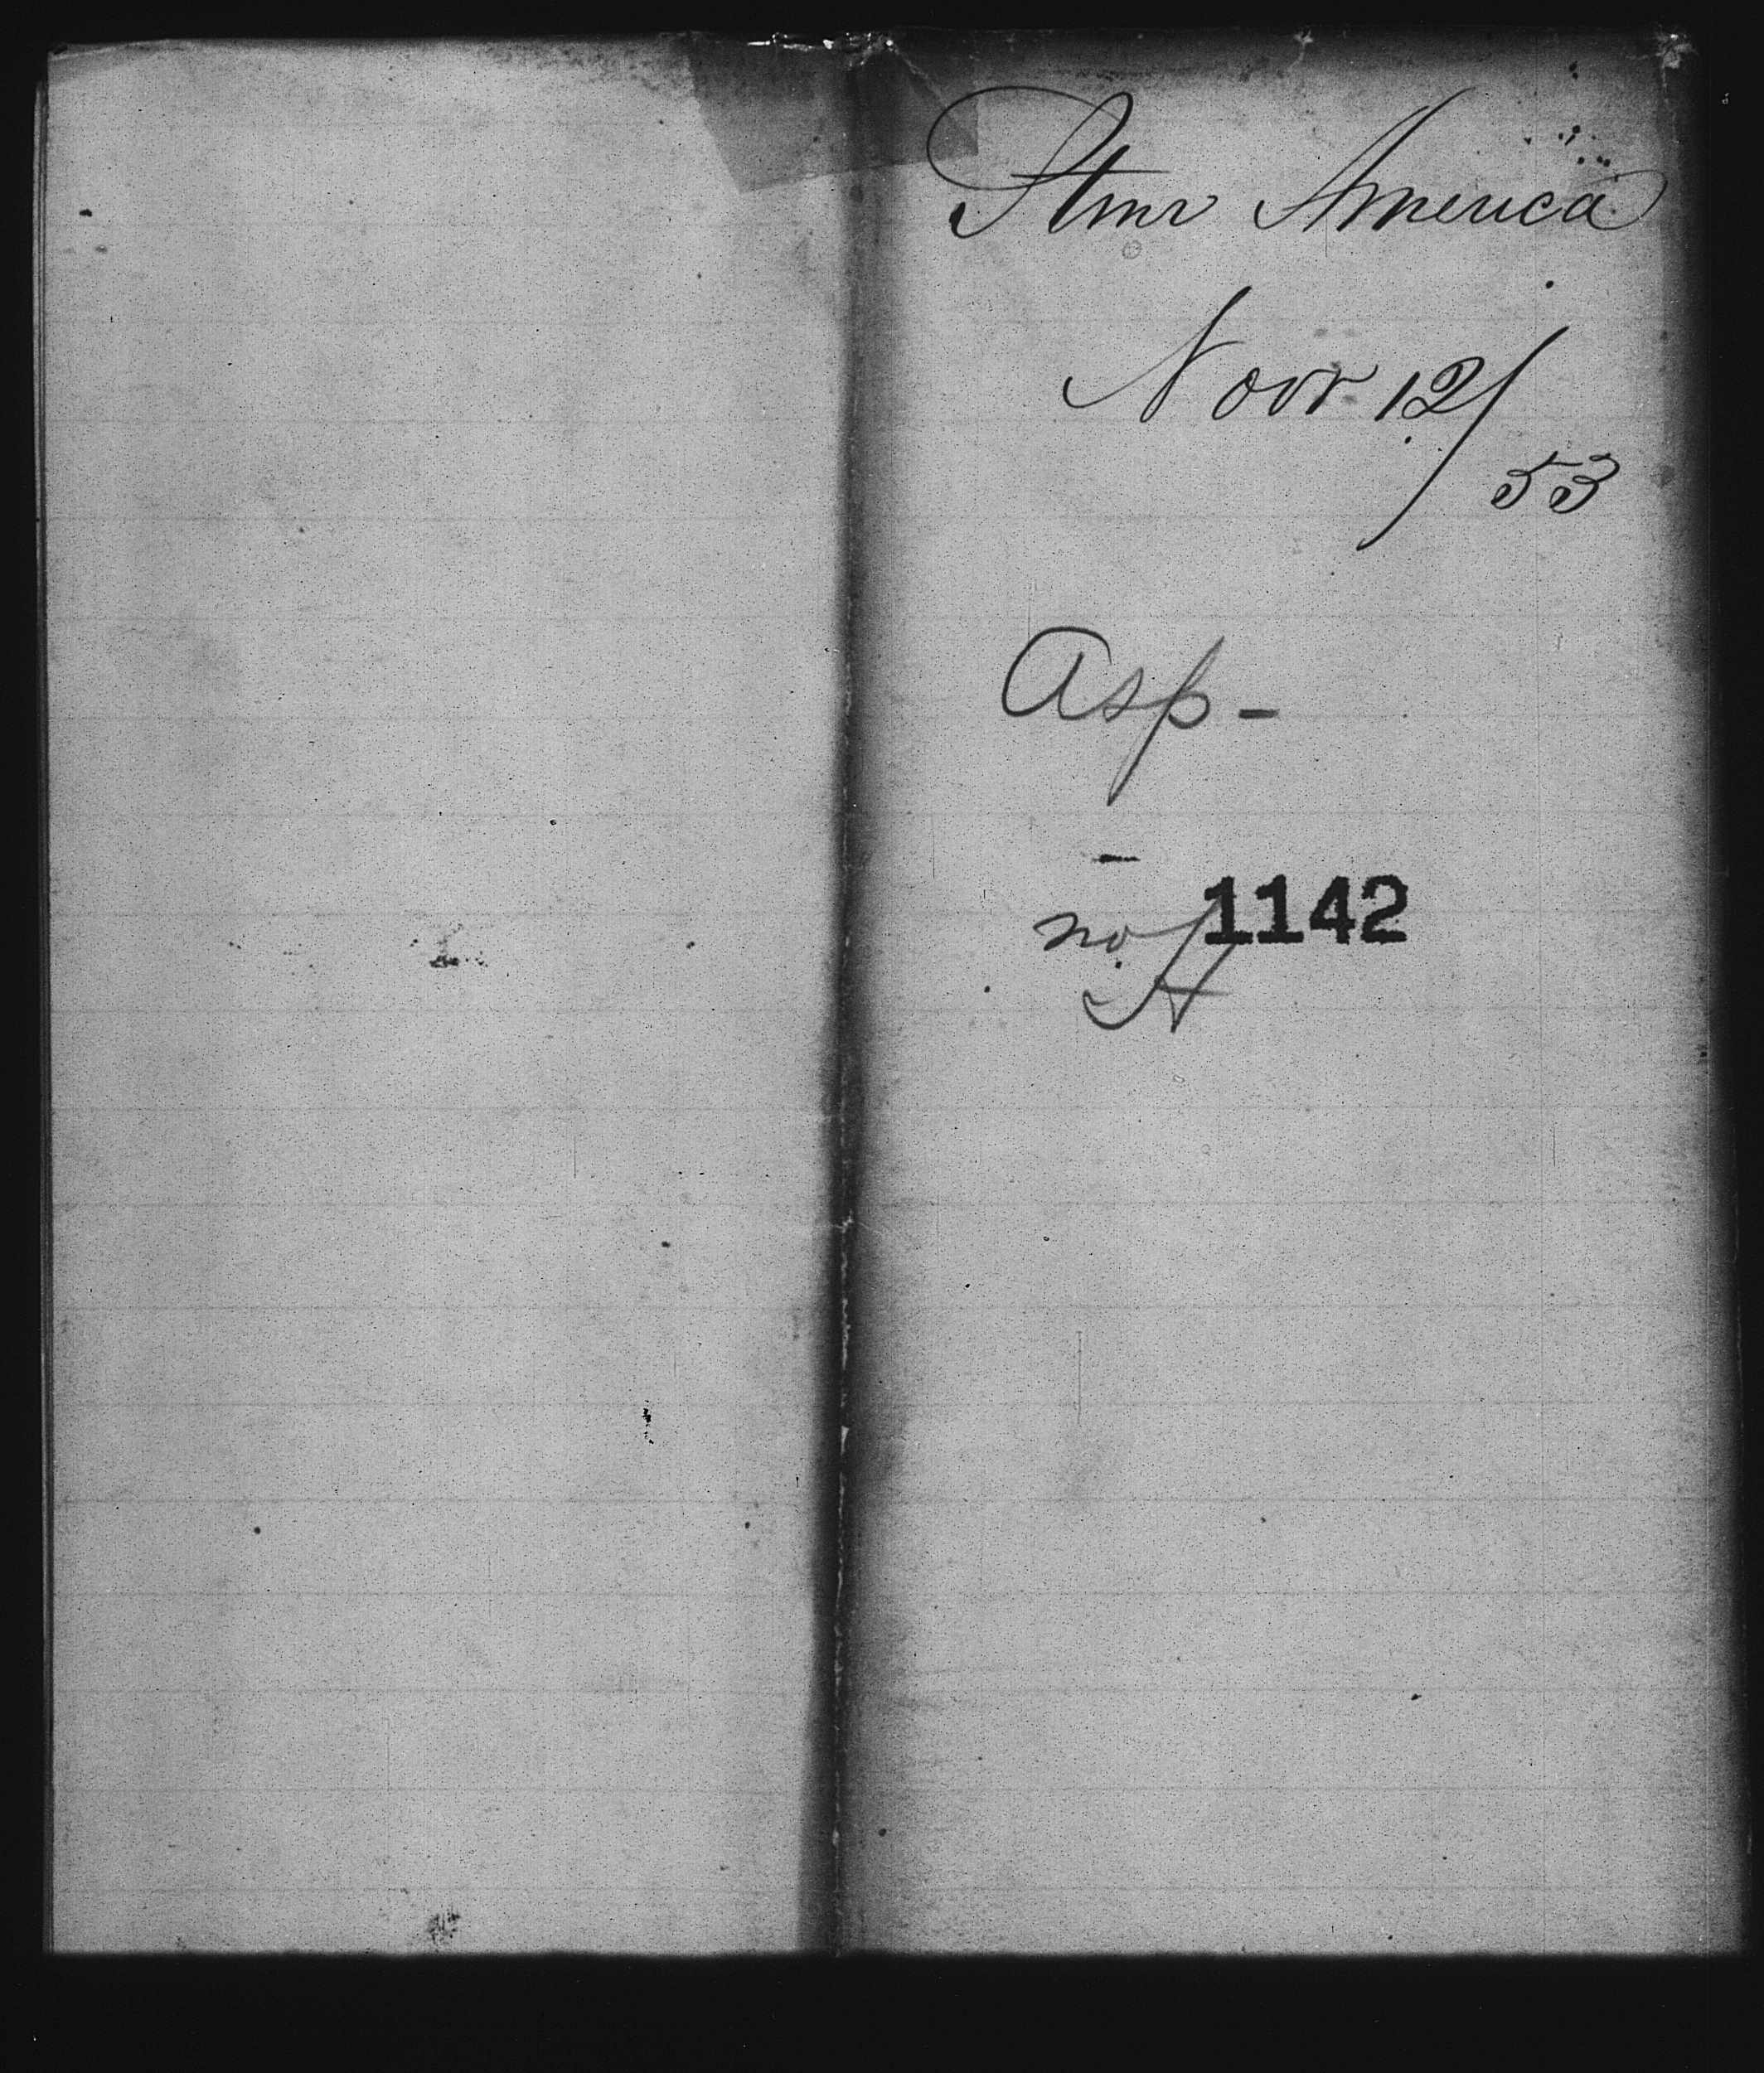 Stmr America
Novr 12/
53
Asp -
no 1142
A